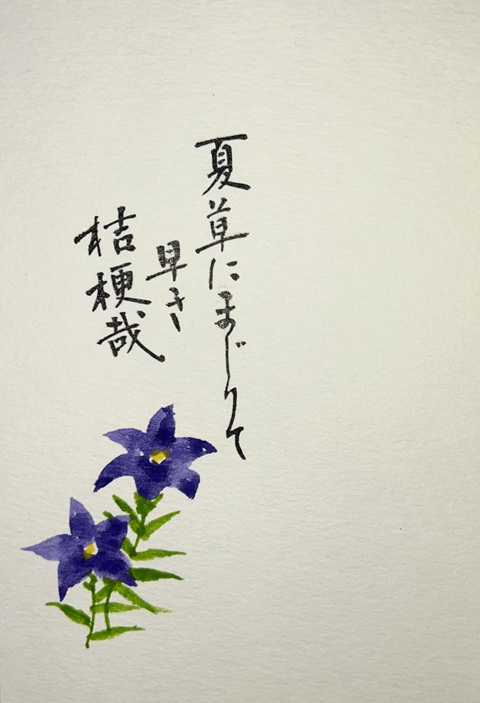 夏草にまじりて
早き
桔梗哉